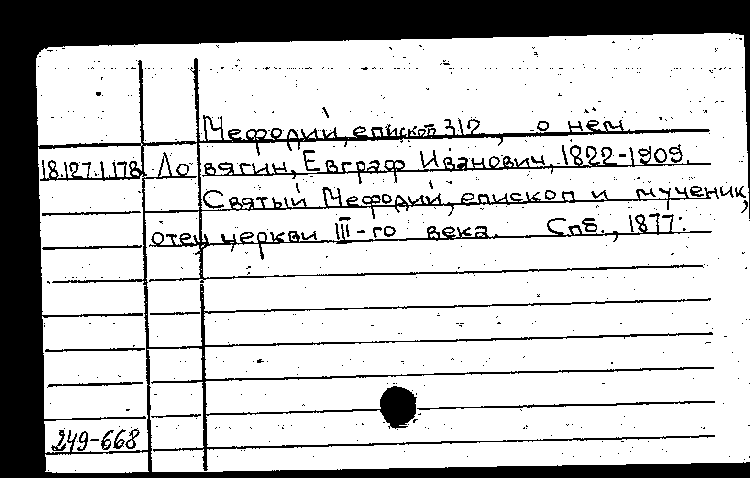 Мефодий, епископ 312, о нём
18.127.1.178. Ловягин, Евграф Иванович, 1822-1909.
Святый Мефодий, епископ и мученик,
отец церкви III-го века. Спб., 1877.
249-668